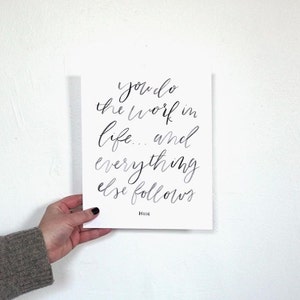 you do
the work in
life... and
everything
else follows